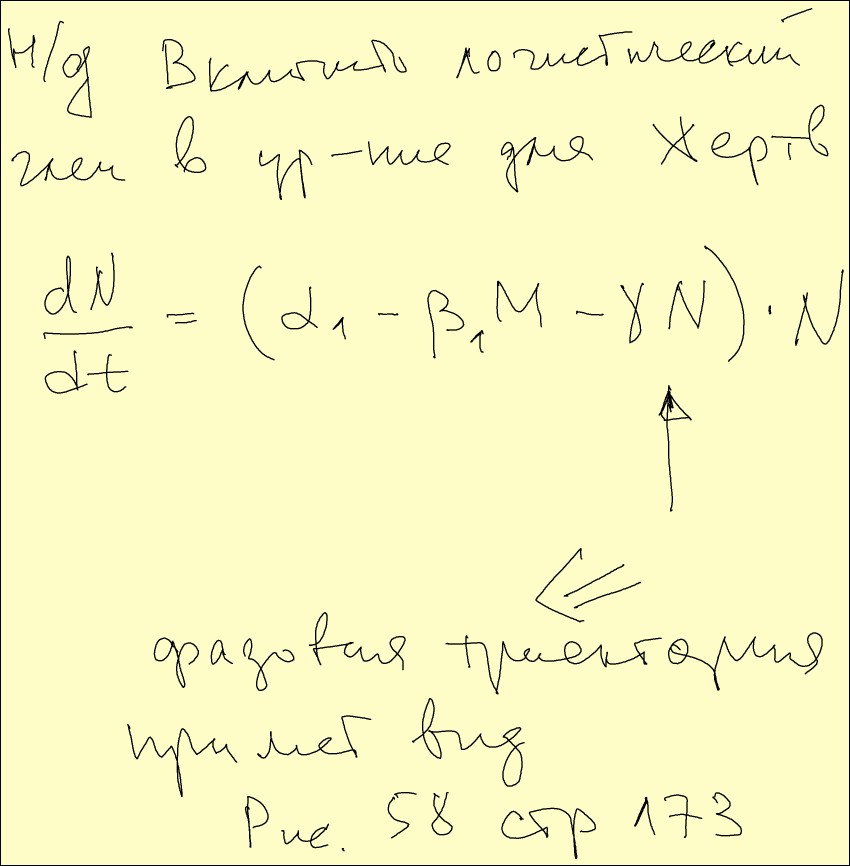 Н/д Включить логистический
член в ур-ние для Жертв
dN/dt = (α₁ - β₁M - γN)·N
фазовая траектория
примет вид
Рис. 58 стр 173